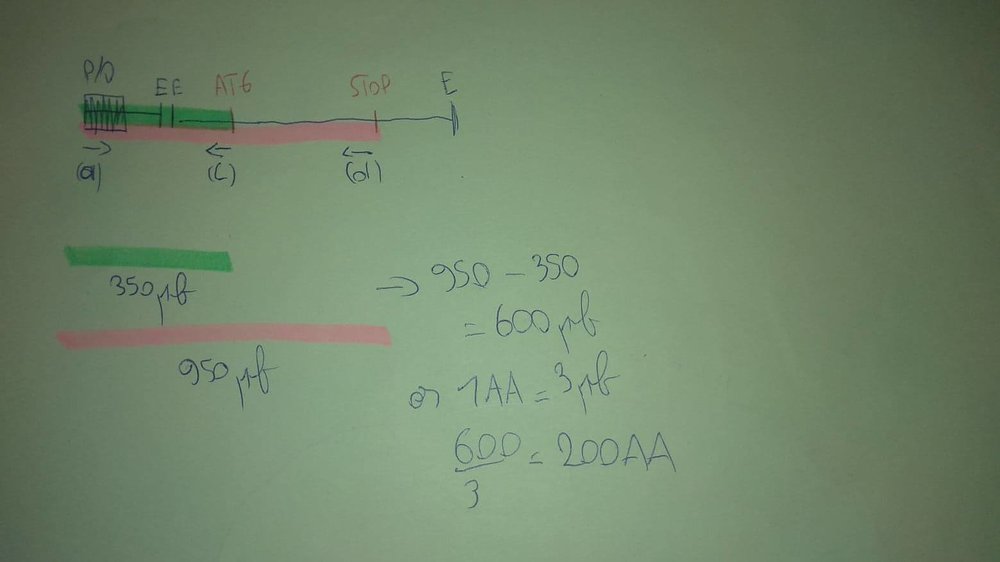 P/O EE ATG STOP E
(a) (c) (d)
350 pb
→ 950 - 350
= 600 pb
950 pb
or 1AA = 3 pb
600/3 = 200AA